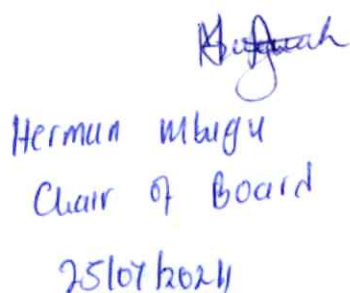 Herman Mbugu
Chair of Board
25/07/2024